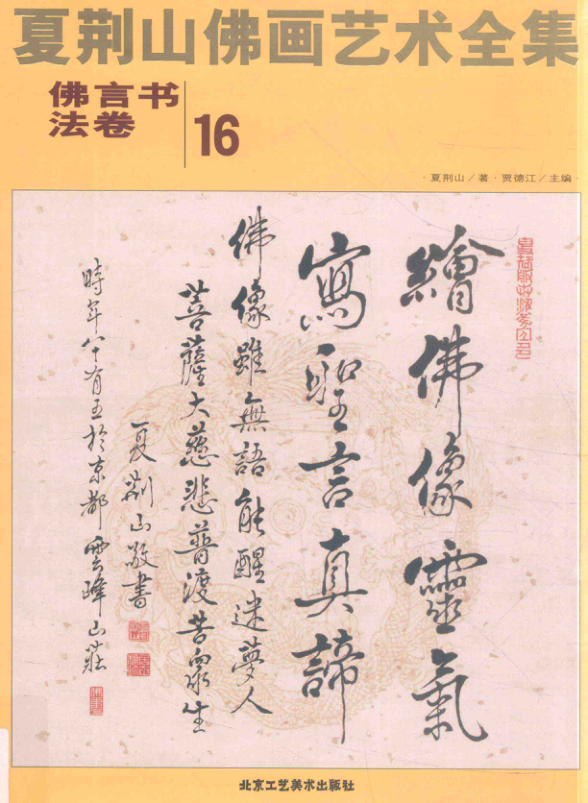 夏荆山佛画艺术全集
佛言书
法卷
16
·夏荆山/著·贾德江/主编·
繪佛像靈氣
寫聖言真諦
佛像雖無語能醒迷夢人
菩薩大慈悲普渡苦眾生
夏荆山敬書
時年八十有五於京都雲峰山莊
北京工艺美术出版社